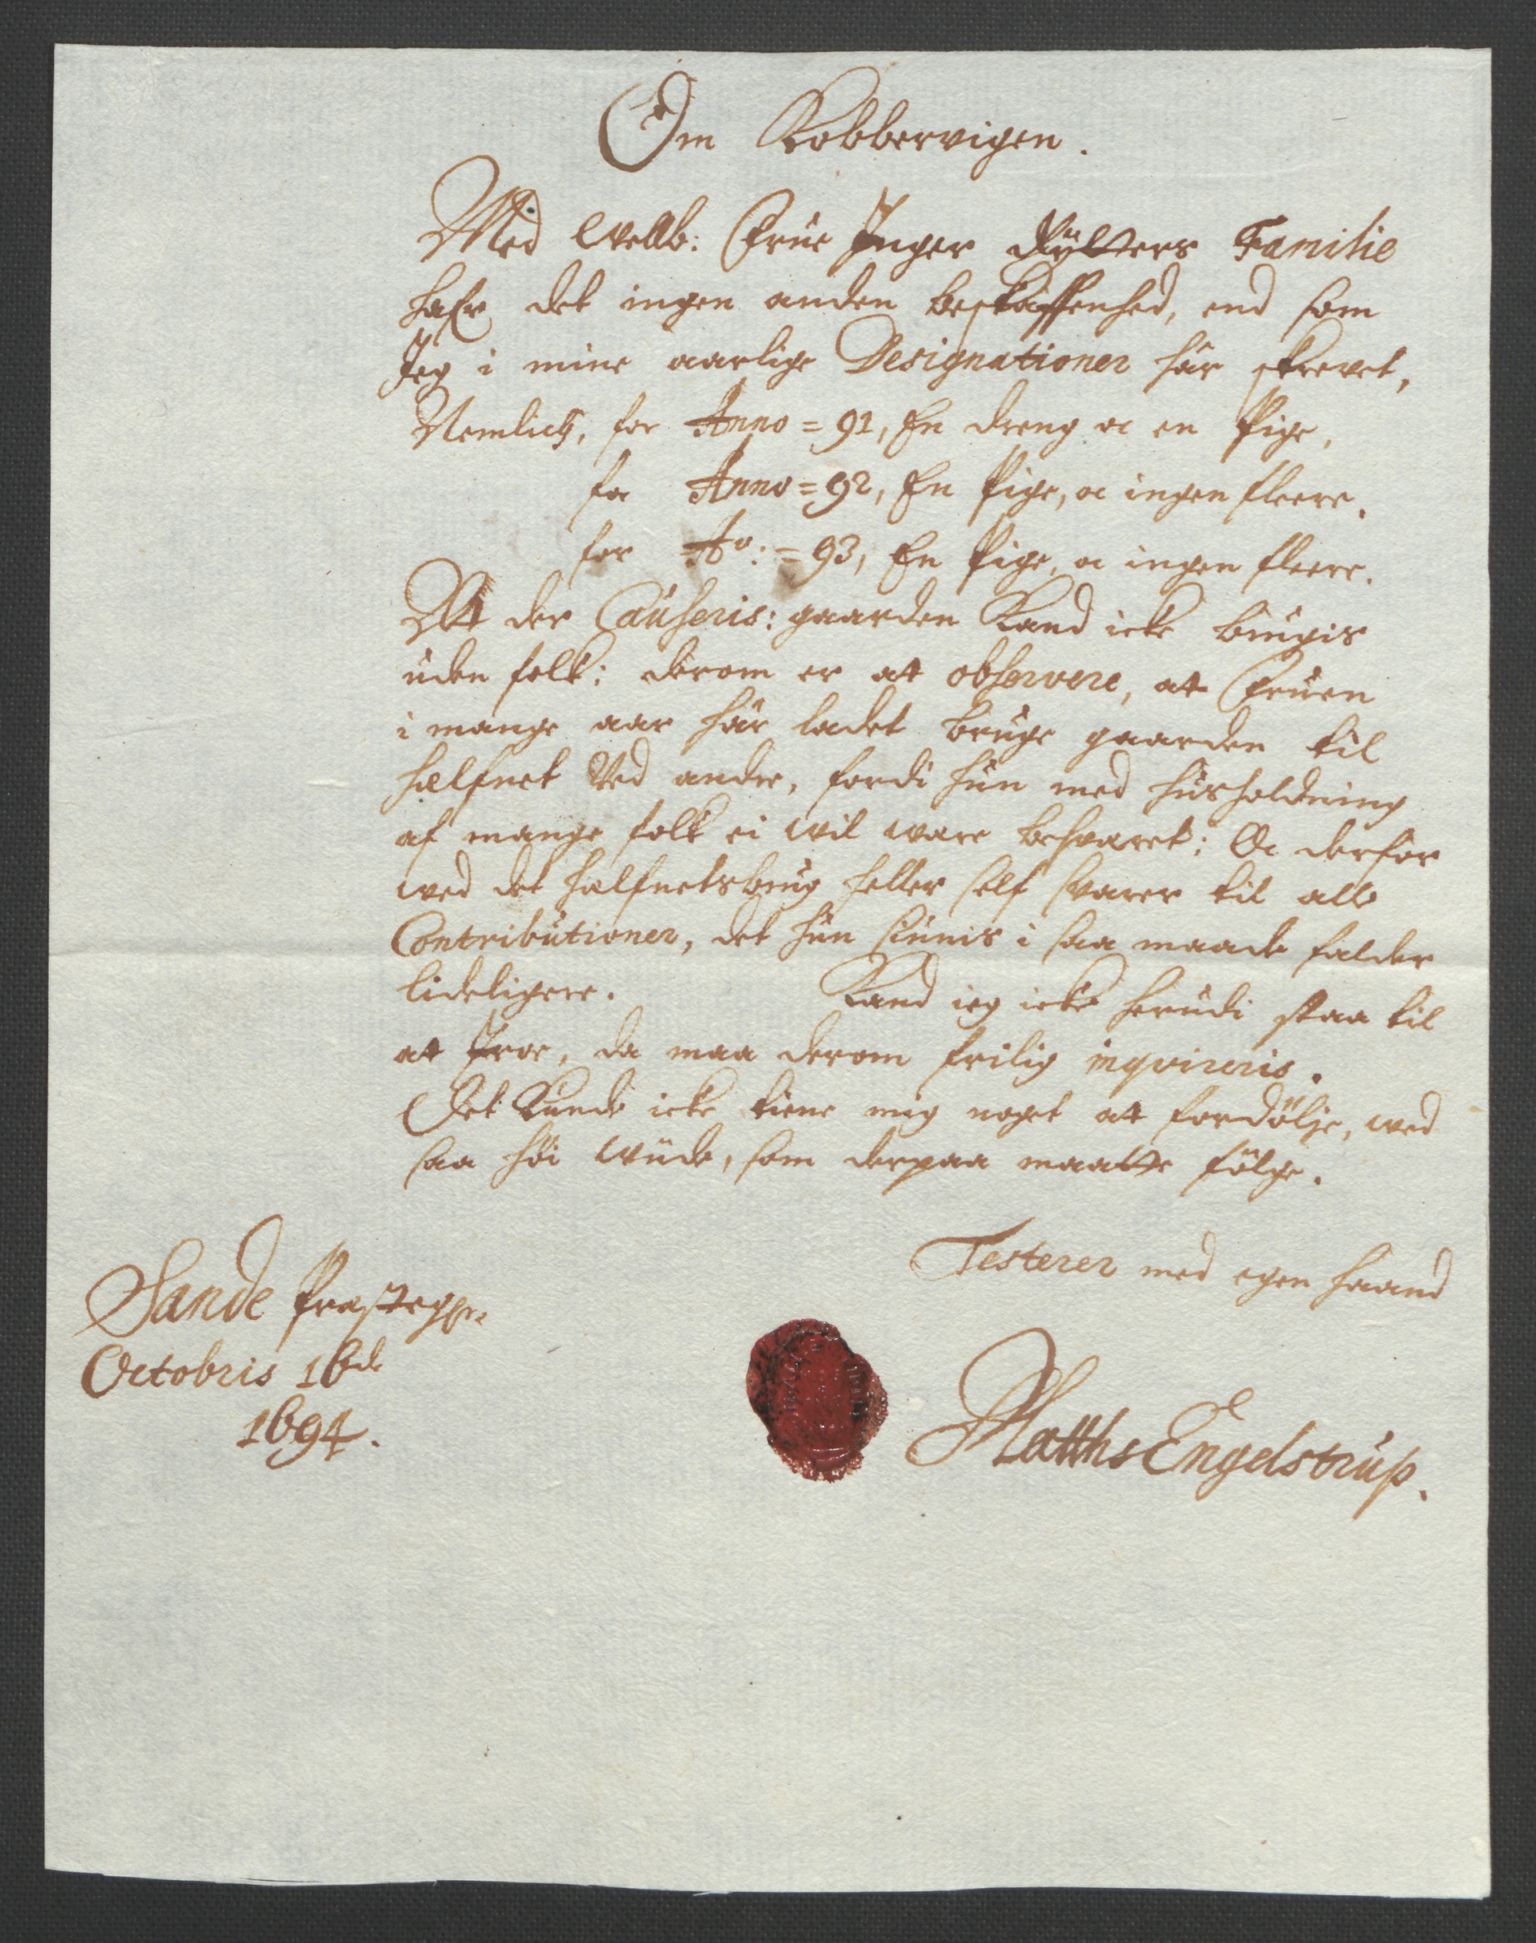 Om Kobbervigen.
Med Wellb: Frue Inger Rÿtters Familie
hafr det ingen anden beskaffenhed, end som
Jeg i mine aarlige Designationer hâr skrevet,
Nemlich, for Anno = 91, En dreng oc en Pige,
for Anno = 92, En Pige, oc ingen fleere.
for Ao: = 93, En Pige, oc ingen fleere.
At der Causeris: gaarden kand icke brugis
uden folk: derom er at observere, at Fruen
i mange aar hâr ladet bruge gaarden til
halfnet Ved andre, fordi hun med husholdning
af mange folk ei wil ware besvaret; Oc derfor
wed det halfnetsbrug heller self svarer til alle
Contributioner, det hun siunis i saa maade falder
lideligere. Kand ieg icke herudi staa til
at Troe, da maa derom frilig inqvireris.
Det kunde icke tiene mig noget at fordölje, wed
saa höi Wüde, som derpaa maatte fölge.
Testerer med egen haand
Sande Præstegr
Octobris 16de
1694.
Matths Engelstrup.